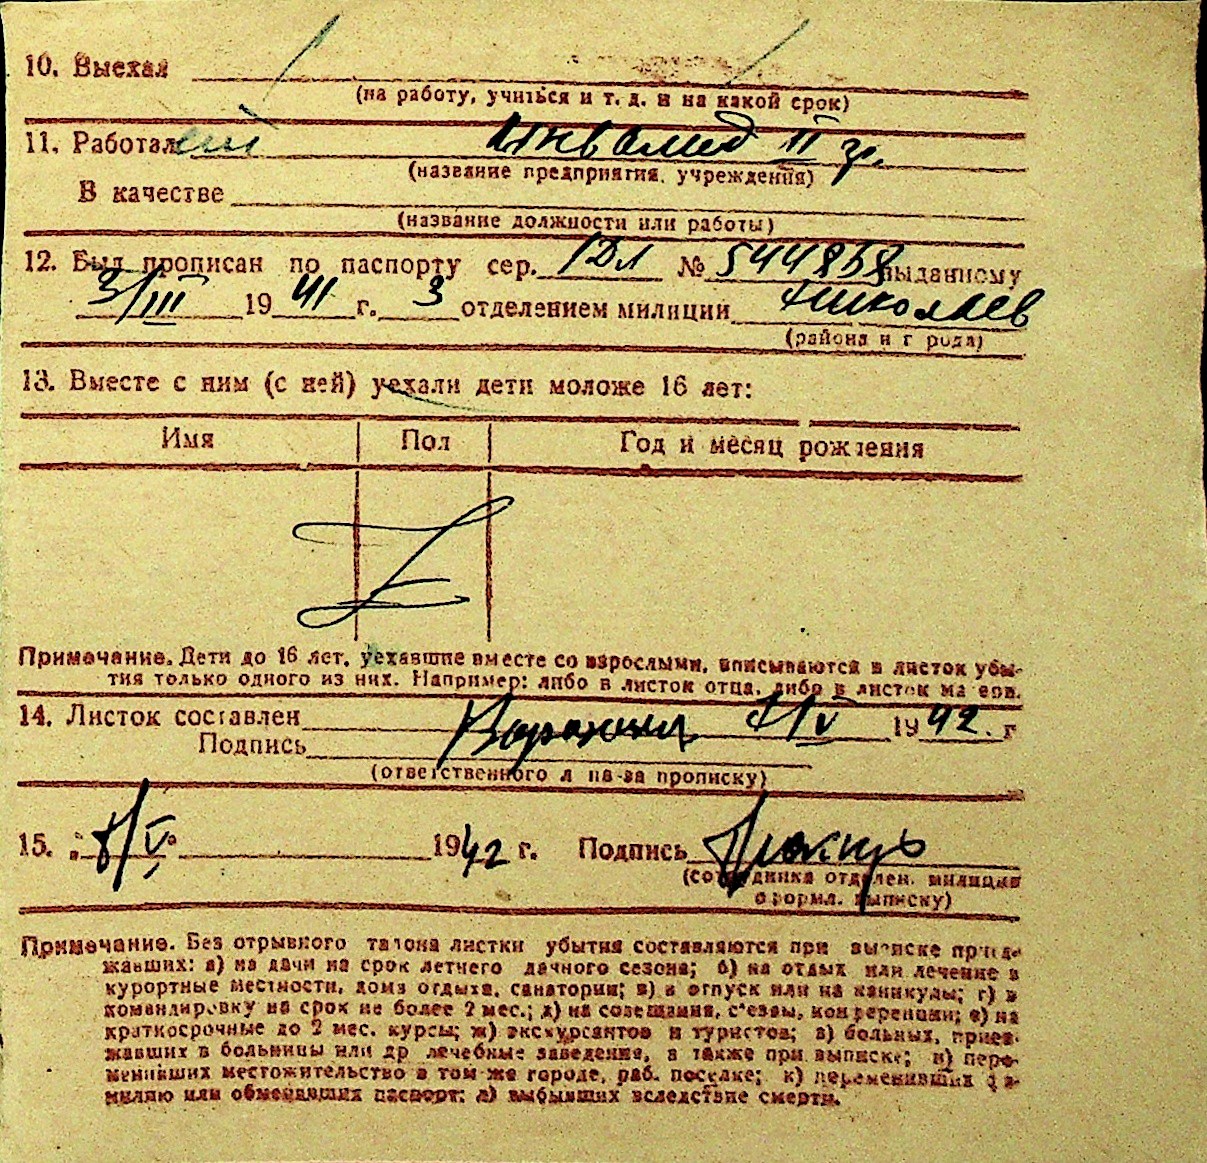 10. Выехал
(на работу, учиться и т. д. и на какой срок)
11. Работал Инвалид II гр.
(название предприятия, учреждения)
В качестве
(название должности или работы)
12. Был прописан по паспорту сер. № 544858 выданному
3/III 1941 г. 3 отделением милиции Николаев
(района и г рода)
13. Вместе с ним (с ней) уехали дети моложе 16 лет:
Имя Пол Год и месяц рождения
Примечание. Дети до 16 лет, уехавшие вместе со взрослыми, вписываются в листок убы-
тия только одного из них. Например: либо в листок отца, либо в листок ма ери.
14. Листок составлен V 1942. г
Подпись
(ответственного л ца за прописку)
15. „8/V“ 1942 г. Подпись
(сотрудника отделен. милиции
оформл. выписку)
Примечание. Без отрывного талона листки убытия составляются при выписке приез-
жавших: а) на дачи на срок летнего дачного сезона; б) на отдых или лечение в
курортные местности, дома отдыха, санатории; в) в отпуск или на каникулы; г) в
командировку на срок не более 2 мес.; д) на совещания, съезды, конференции; е) на
краткосрочные до 2 мес. курсы; ж) экскурсантов и туристов; з) больных, приез-
жавших в больницы или др лечебные заведения, а также при выписке; и) пере-
менивших местожительство в том же городе, раб. поселке; к) переменивших фа-
милию или обменявших паспорт; л) выбывших вследствие смерти.